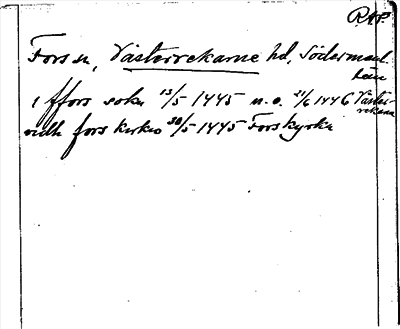 RAP.
Fors sn, Västerrekarne hd, Södermanl.
län
i ffors sokn 13/5 1445 n.o. 21/6 1446 Väster-
rekarne
vidh fors kirkio 30/5 1445 Fors kyrka